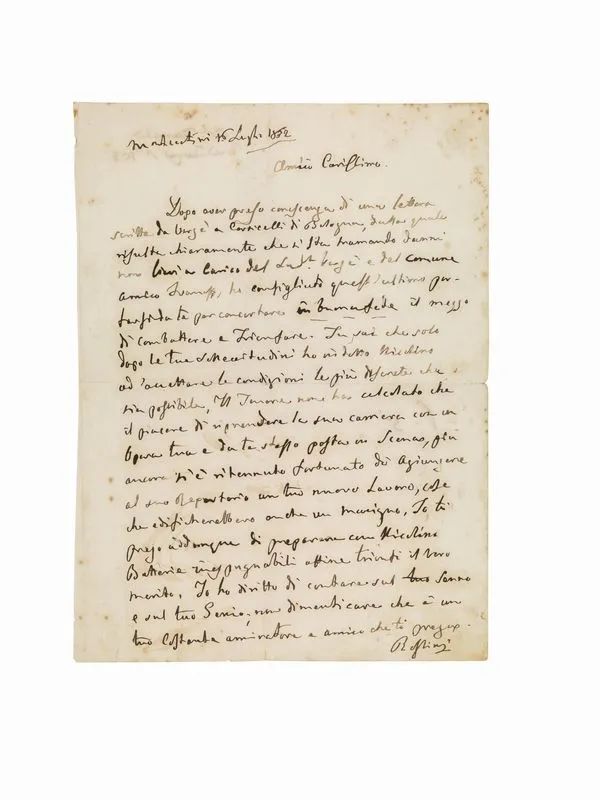 Montecatini 16 Luglio 1852
Amico Carissimo.
Dopo aver preso conoscenza di una lettera
scritta da Vergè a Corticelli di Bologna, dalla quale
risulta chiaramente che si sta tramando danni
non lievi a Carico del e del comune
amico Ivanoff, ho consigliato quest'ultimo por-
tarsi da te per concertare in buona fede il mezzo
di Combattere e Trionfare. Tu sai che solo
dopo le tue Sollecitudini ho indotto Nicolino
ad accettare le condizioni le più discrete che
sia possibile, Il Tenore non ha calcolato che
il piacere di riprendere la sua carriera con un
Opera tua e da te stesso posta in Scena, più
ancora si è ritenuto fortunato di agiungere
al suo Repertorio un tuo nuovo Lavoro, cose
che edificherebbero anche un macigno, Io ti
prego addunque di preparare con Nicolino
Batterie inespugnabili affine trionfi il Vero
merito, Io ho diritto di contare sul tuo Senno
e sul tuo Genio; non dimenticare che è un
tuo Costante amiratore e amico che ti prega.
Rossini